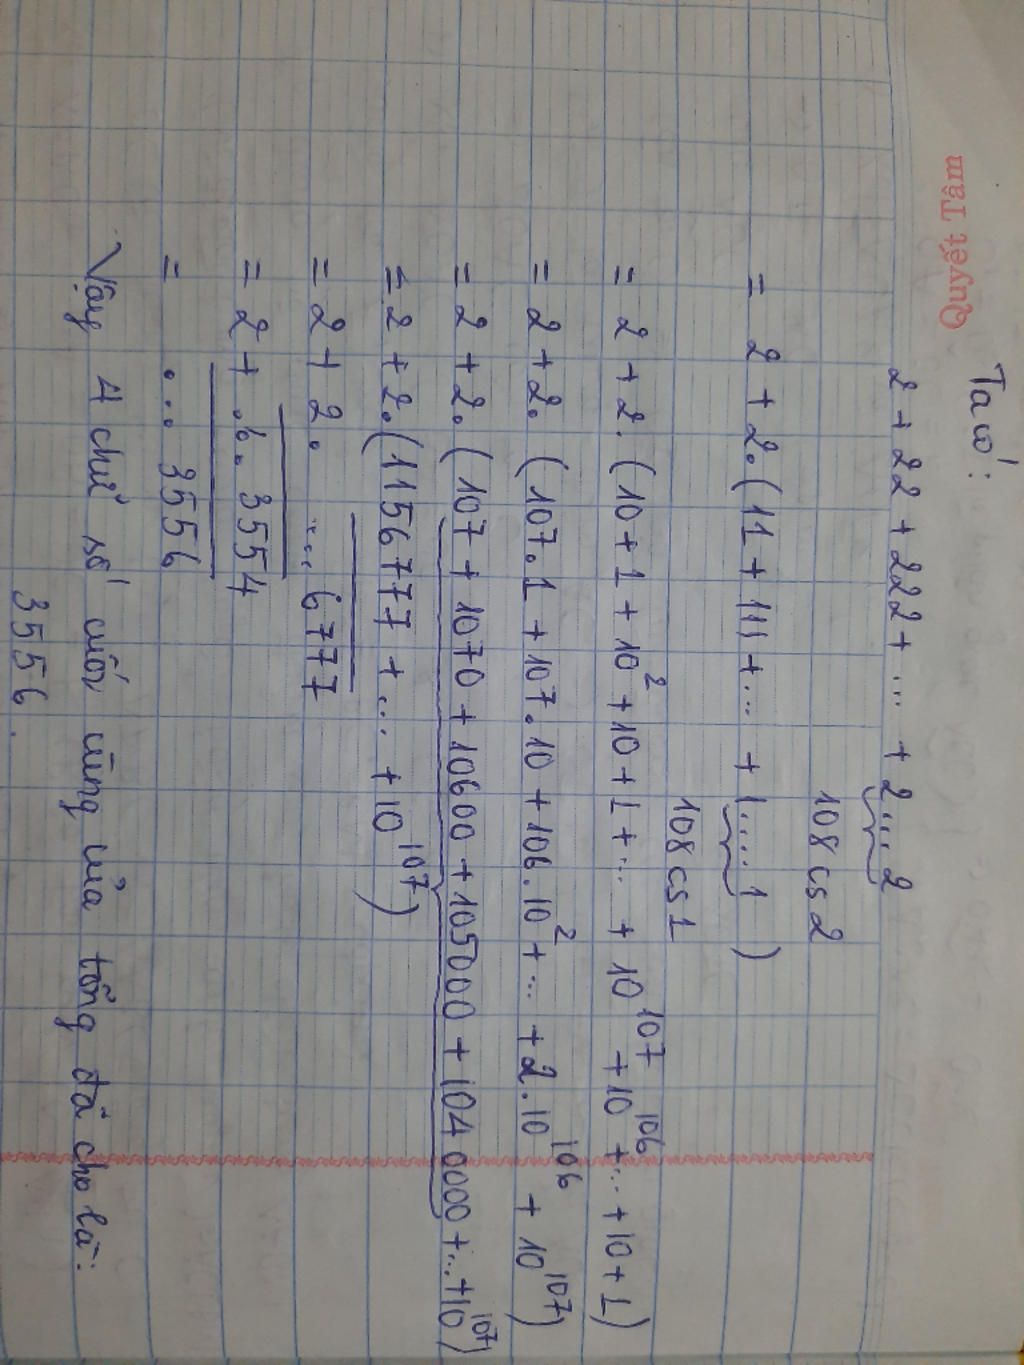 Quyết Tâm
Ta có:
2 + 22 + 222 + ... + 2...2
108 cs 2
= 2 + 2.(11 + 111 + ... + 1.....1)
108 cs 1
= 2 + 2.(10 + 1 + 10² + 10 + 1 + ... + 10¹⁰⁷ + 10¹⁰⁶ + ... + 10 + 1)
= 2 + 2.(107.1 + 107.10 + 106.10² + ... + 2.10¹⁰⁶ + 10¹⁰⁷)
= 2 + 2.(107 + 1070 + 10600 + 105000 + 1040000 + ... + 10¹⁰⁷)
= 2 + 2.(1156777 + ... + 10¹⁰⁷)
= 2 + 2. ...6777
= 2 + ...3554
= ...3556
Vậy 4 chữ số cuối cùng của tổng đã cho là:
3556.